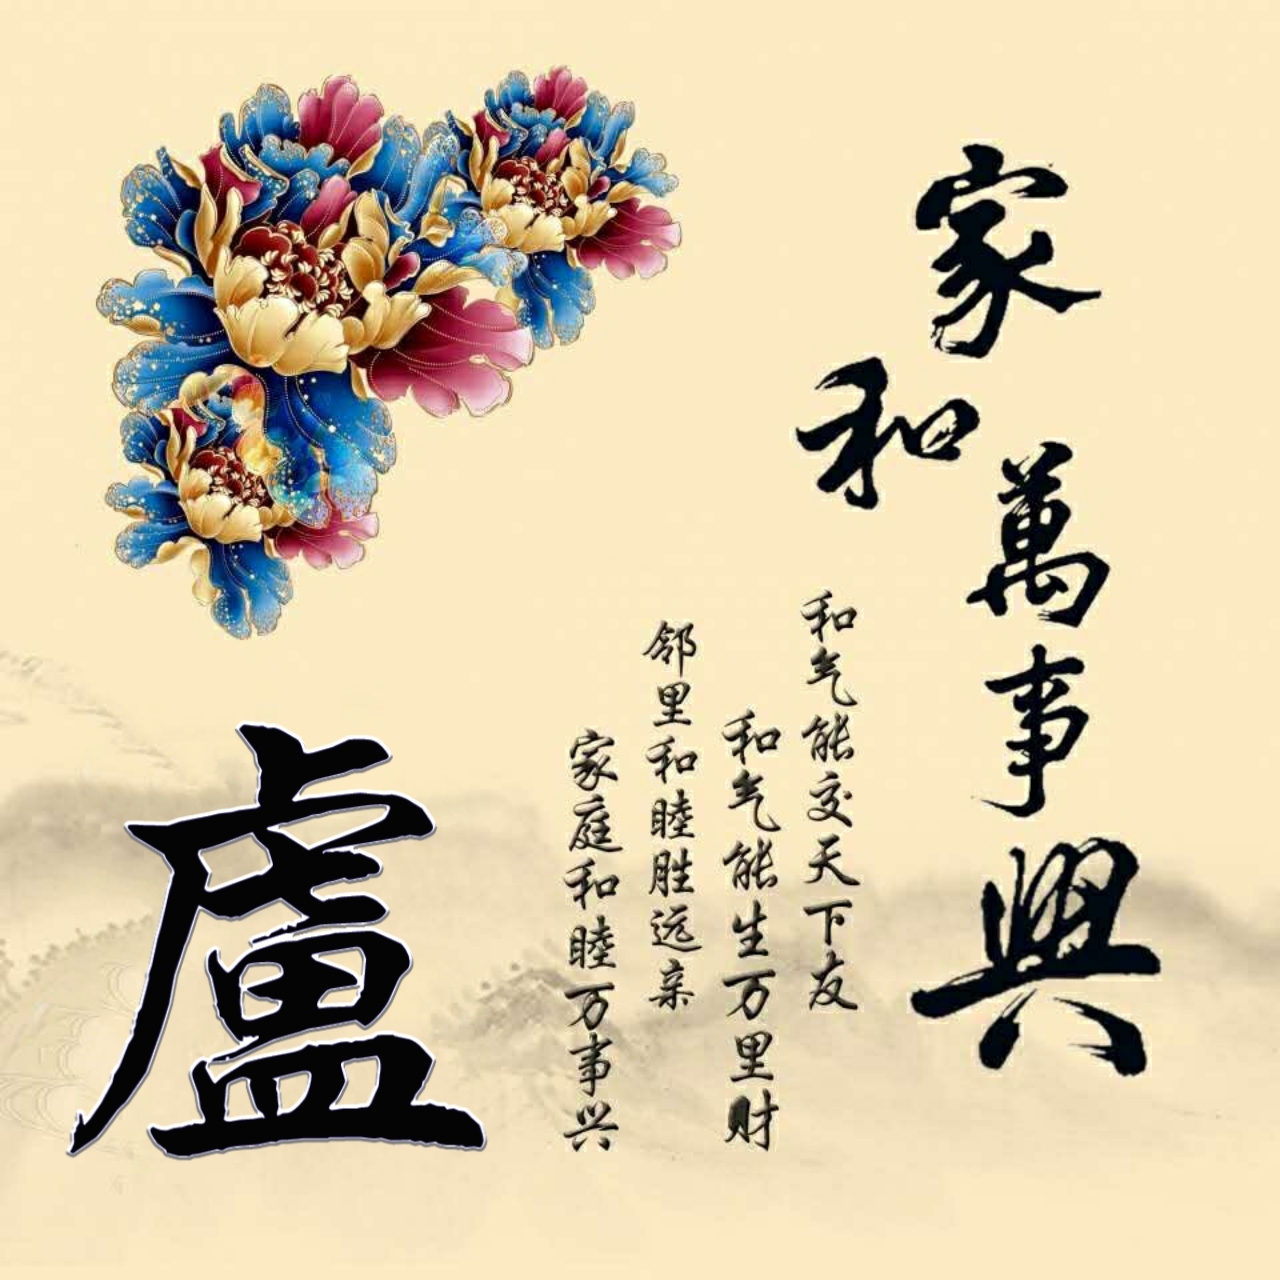 家和萬事興
和气能交天下友
和气能生万里财
邻里和睦胜远亲
家庭和睦万事兴
盧